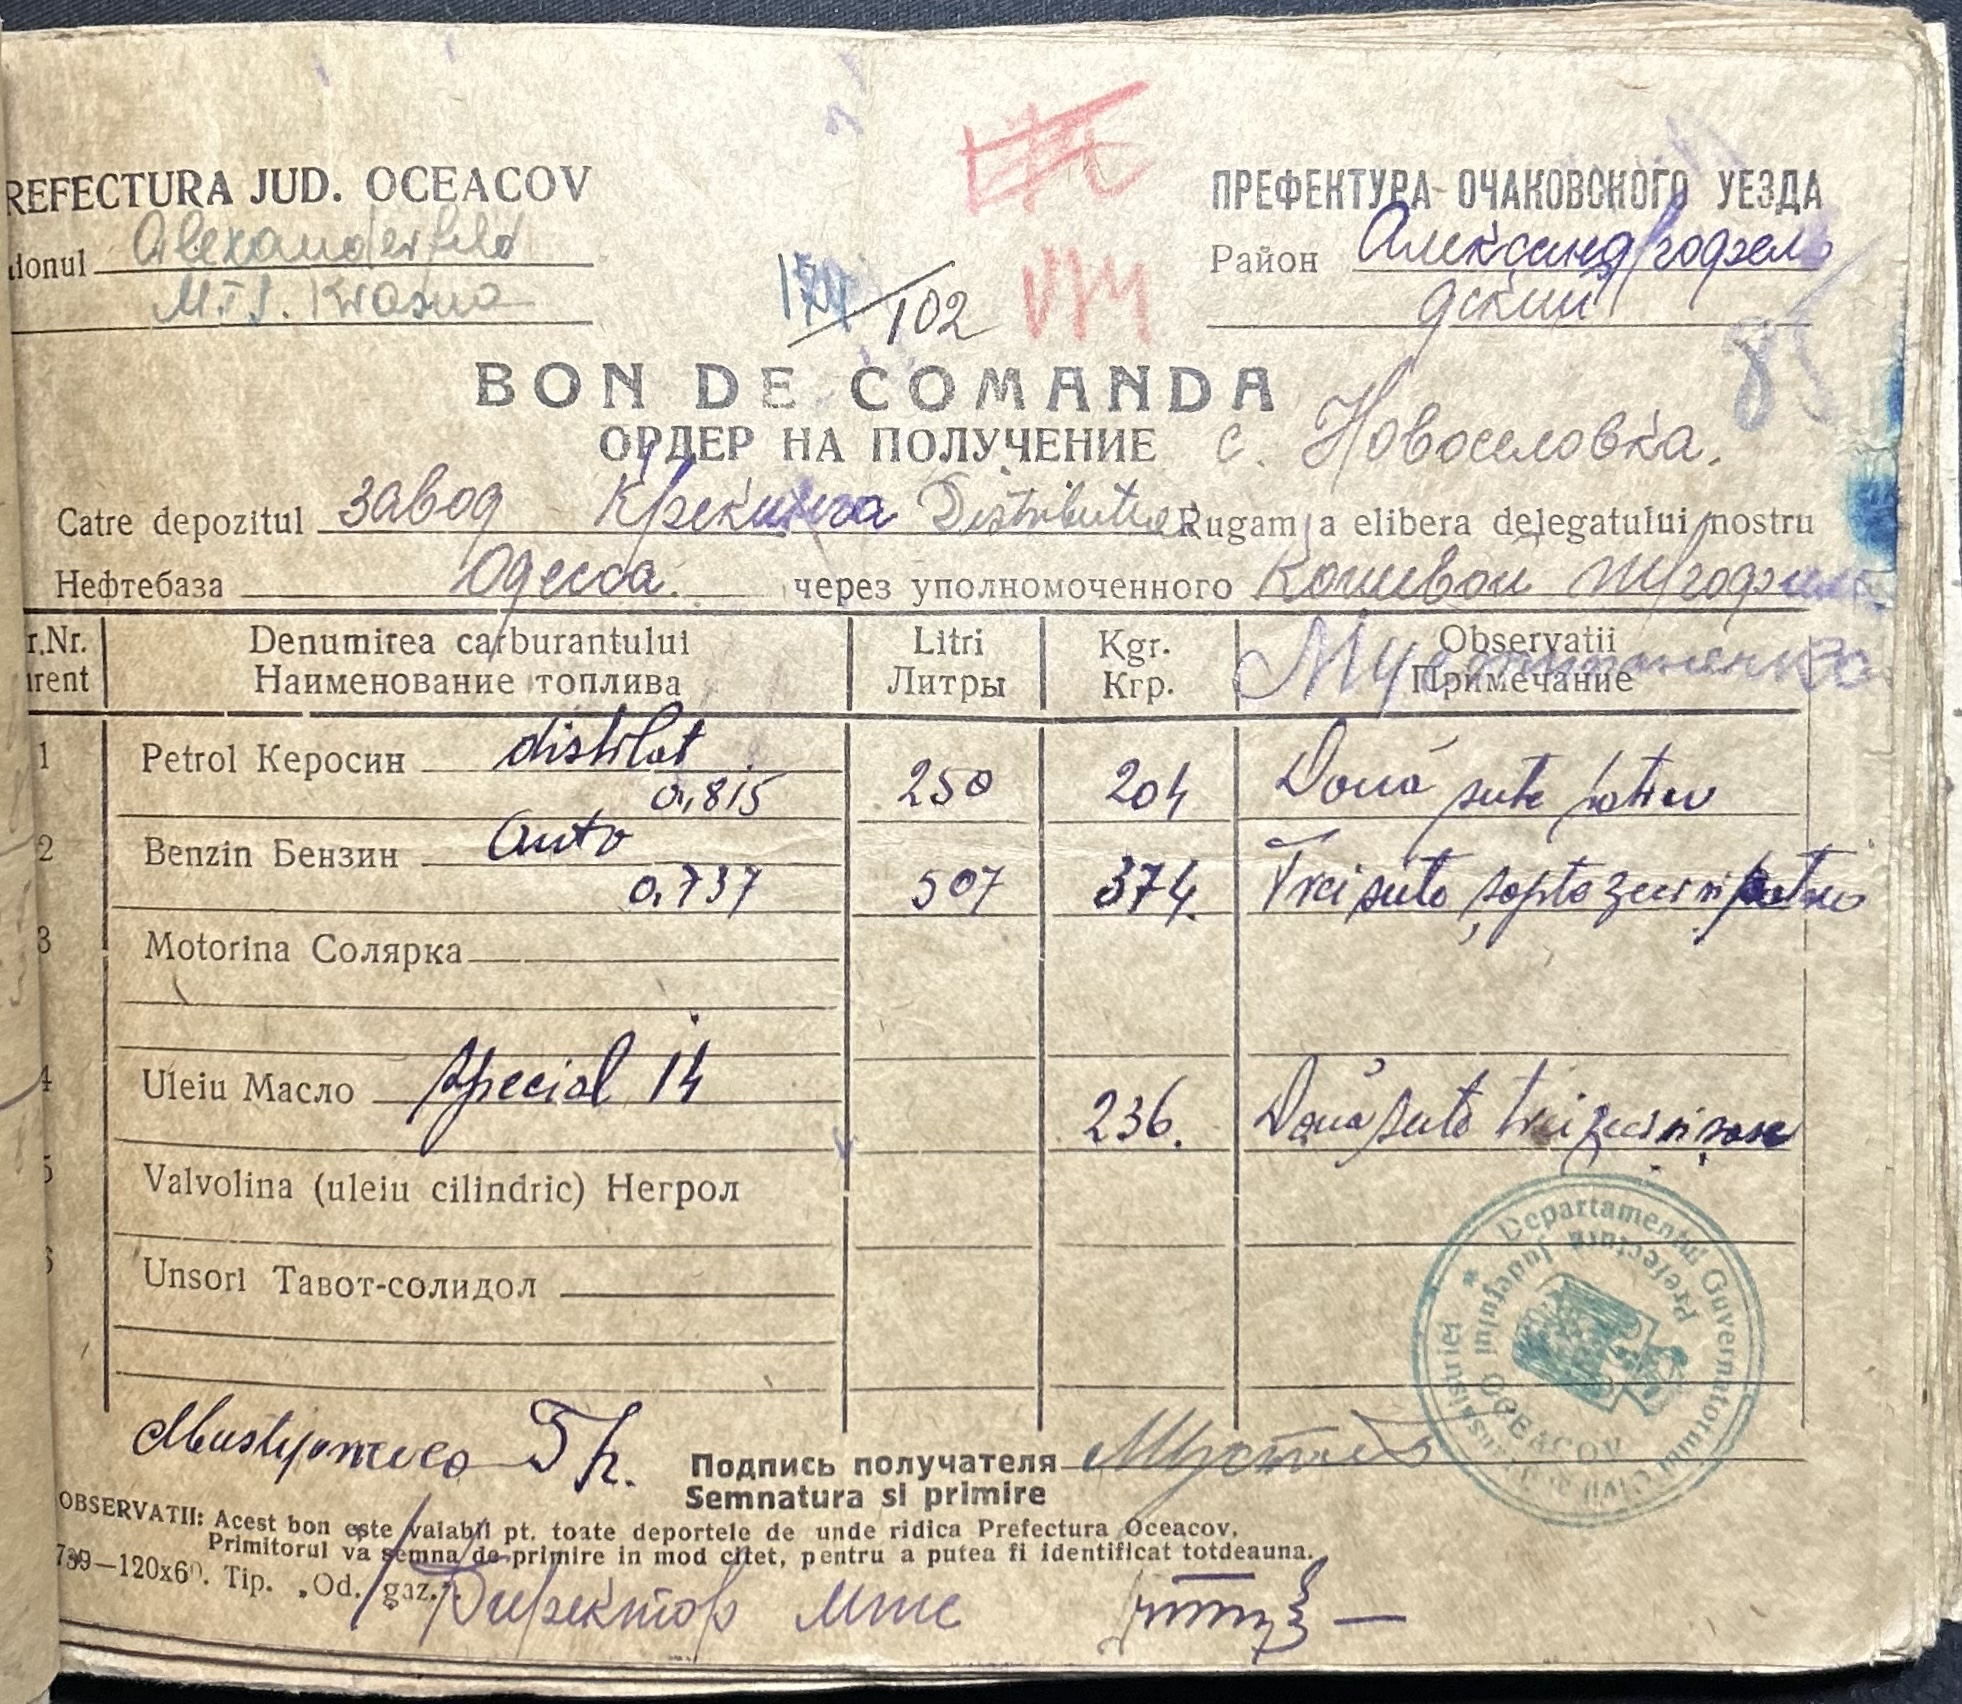 REFECTURA JUD. OCEACOV
ПРЕФЕКТУРА ОЧАКОВСКОГО УЕЗДА
ionul Alexanderfeld
Район Александрофель
M.T.S. Krasna
дский
174/102
174
85
BON DE COMANDA
ОРДЕР НА ПОЛУЧЕНИЕ с. Новоселовка.
Catre depozitul завод Крекинга Distributia Rugam a elibera delegatului nostru
Нефтебаза Одесса. через уполномоченного Кошевой
r.Nr. Denumirea carburantului Litri Kgr. Observatii
urent Наименование топлива Литры Кгр. Примечание
1 Petrol Керосин distilat
0,815 250 204 Două sute patru
2 Benzin Бензин auto
0,737 507 374. Trei sute șapte zeci și patru
3 Motorina Солярка
4 Uleiu Масло special 14
236. Două sute trei zeci și șase
5 Valvolina (uleiu cilindric) Негрол
6 Unsori Тавот-солидол
Departamentul Guvernatorului Civil al Transnistriei
Prefectura Judeţului OCEACOV
Подпись получателя
Semnatura si primire
OBSERVATII: Acest bon este valabil pt. toate deportele de unde ridica Prefectura Oceacov.
Primitorul va semna de primire in mod citet, pentru a putea fi identificat totdeauna.
739—120x60. Tip. „Od. gaz."
Директор мтс